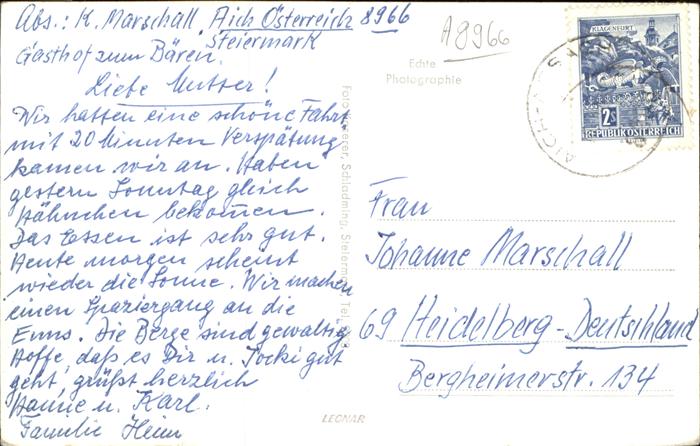 Abs.: K. Marschall, Aich Österreich 8966
Steiermark
Gasthof zum Bären.
A8966
Echte
Photographie
KLAGENFURT
2S
REPUBLIK ÖSTERREICH
AICH
Liebe Mutter!
Wir hatten eine schöne Fahrt
mit 20 Minuten Verspätung
kamen wir an. Haben
gestern Sonntag gleich
Hähnchen bekommen.
Das Essen ist sehr gut.
Heute morgen scheint
wieder die Sonne. Wir machen
einen Spaziergang an die
Enns. Die Berge sind gewaltig
Hoffe, daß es Dir u. Jocki gut
geht, grüßt herzlich
Hanne u. Karl.
Familie
Schladming, Steiermark, Tel.
Frau
Johanne Marschall
69 Heidelberg-Deutschland
Bergheimerstr. 134
LEONAR